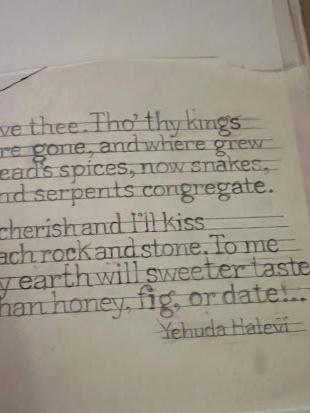 ve thee. Tho' thy kings
re gone, and where grew
ead's spices, now snakes,
nd serpents congregate.
cherish and I'll kiss
ach rock and stone. To me
y earth will sweeter taste
han honey, fig, or date!..
Yehuda Halevi